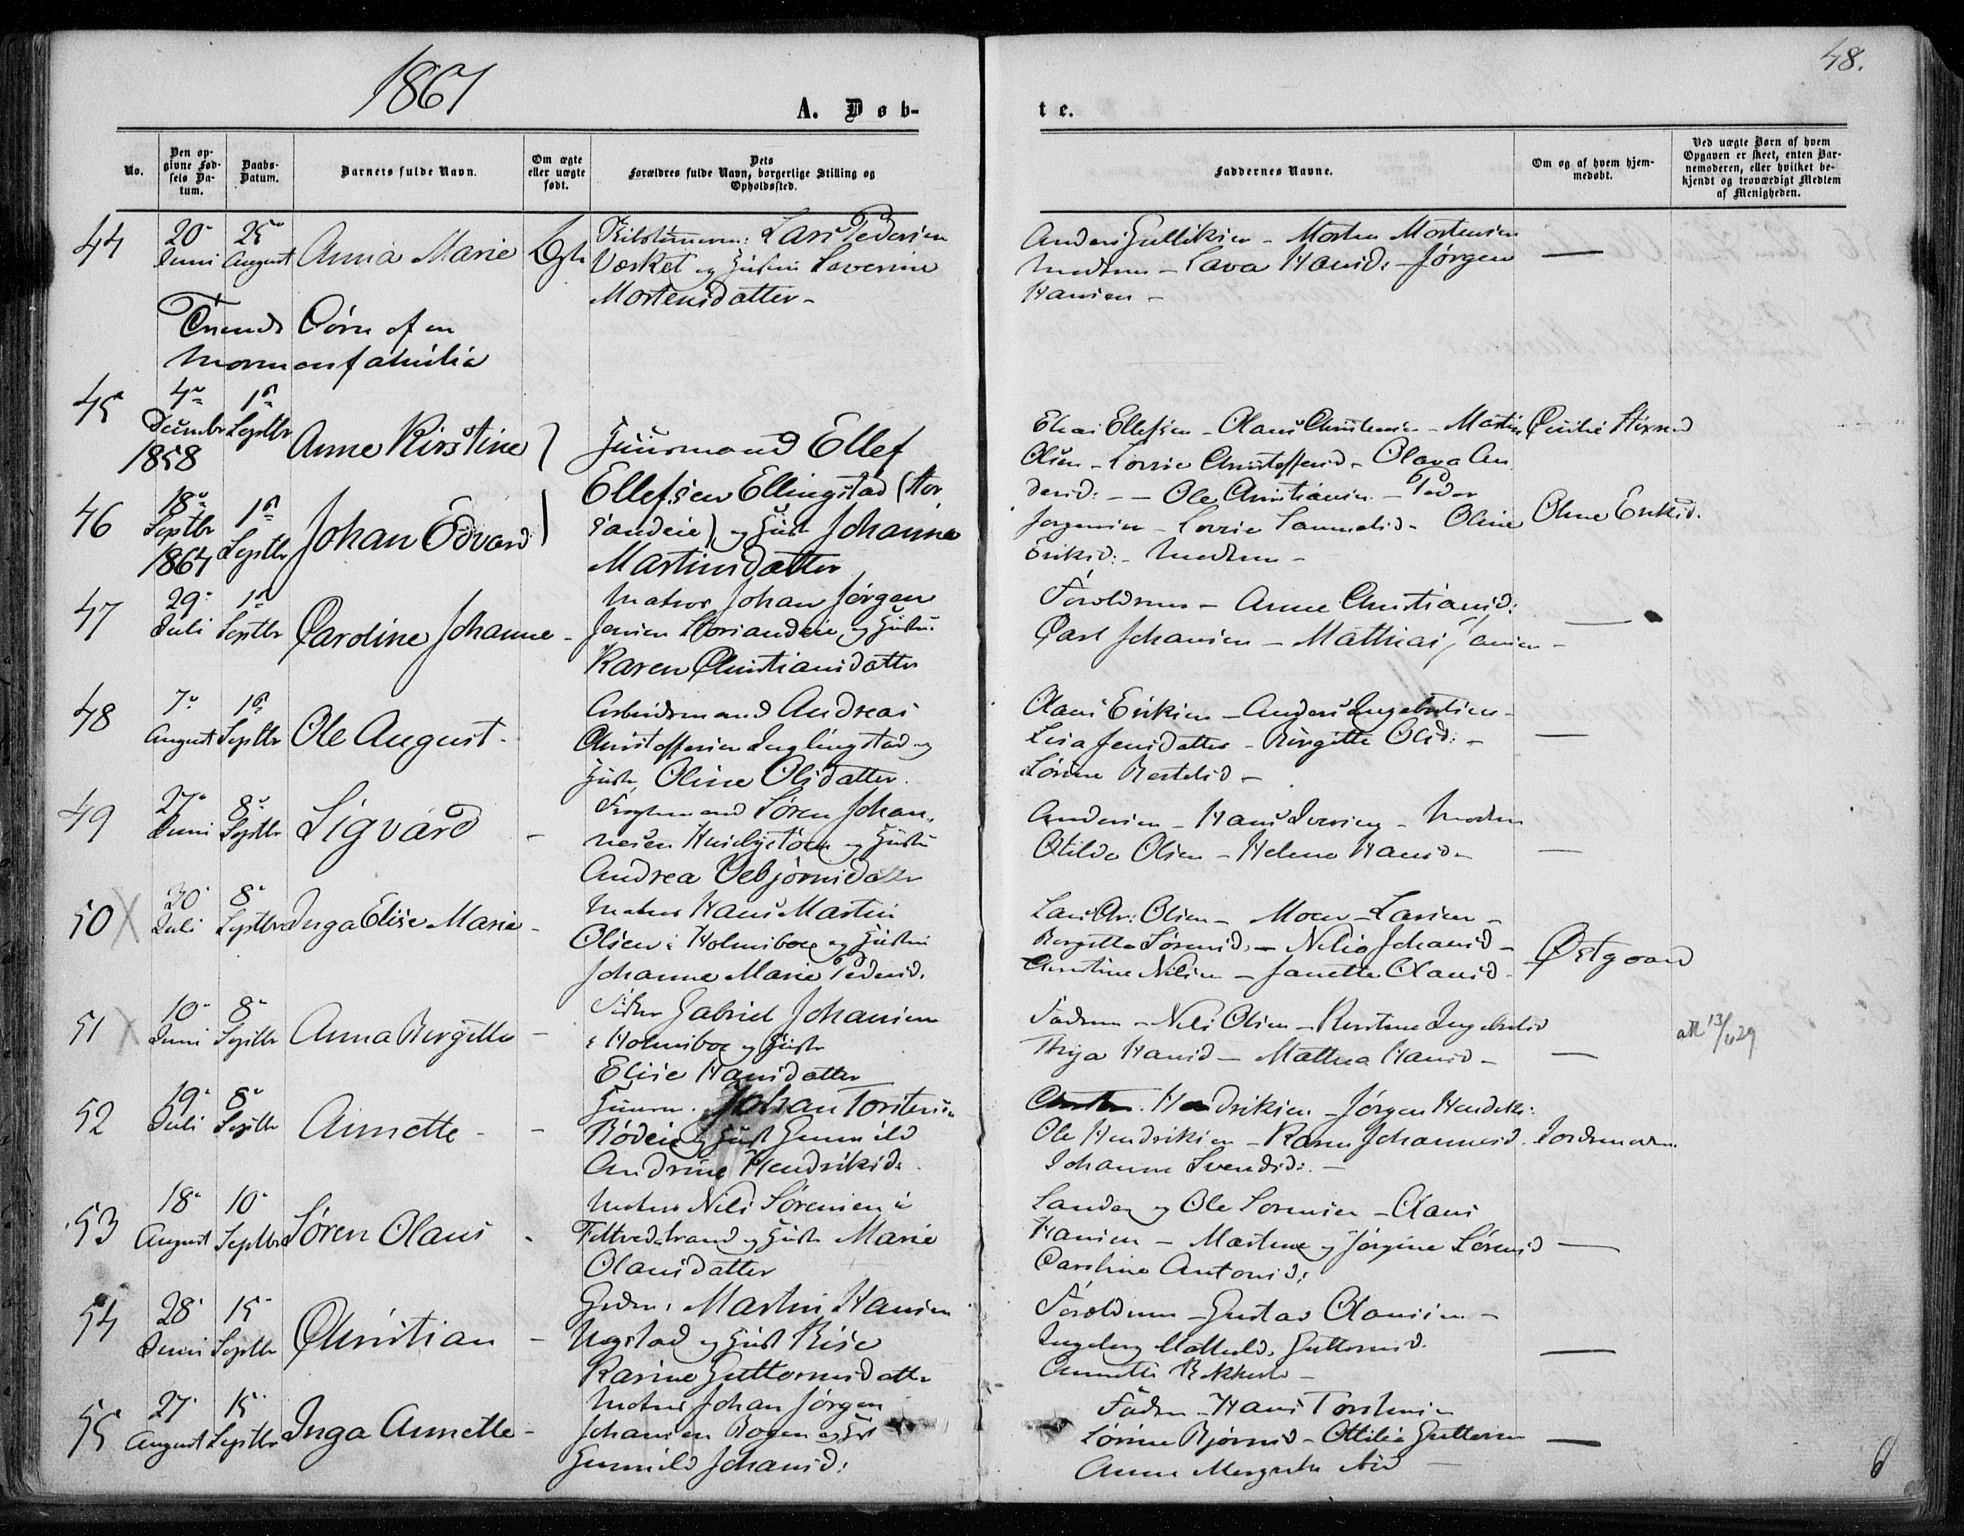 1867
48.
A. Døb-
te.
No.
Den op-
givne Fød-
sels Da-
tum.
Daabs-
Datum.
Barnets fulde Navn.
Om ægte
eller uægte
født.
Dets
Forældres fulde Navn, borgerlige Stilling og
Opholdssted.
Faddernes Navne.
Om og af hvem hjem-
medøbt.
Ved uægte Børn af hvem
Opgaven er skeet, enten Bar-
nemoderen, eller hvilket be-
kjendt og troværdigt Medlem
af Menigheden.
44 20 Juni 25 August Anna Marie Egte
Lars Pedersen
Værket og Hustru Saverine
Mortensdatter -
Anders Gulliksen - Morten Mortensen
Modren - Lava Hansd: - Jørgen
Hansen -
Tvende Børn af en
Mormonfamilie
45 4 Decmbr 1858 1 Septbr Anne Kirstine
Huusmand Ellef
Ellefsen Ellingstad (Stor
sandeie) og Hust Johanne
Martinsdatter
Elias Ellefsen - Olaus Christensen - Martin
Olsen - Lovise Christoffersd - Olava An
dersd: - - Ole Christiansen - Peder
Jørgensen - Lovise Samuelsd - Oline
Eriksd: - Modren -
46 18 Septbr 1864 1 Septbr Johan Edvard
Oline Eriksd.
47 29 Juli 1 Septbr Caroline Johanne -
Matros Johan Jørgen
Jensen Storsandeie og Hustr.
Karen Christiansdatter
Forældrene - Anne Christiansd:
Carl Johansen - Mathias Jansen -
48 7 August 1 Septbr Ole August -
Arbeidsmand Andreas
Christoffersen Inglingstad og
Hustr. Oline Olsdatter.
Olaus Eriksen - Anders Ingebretsen -
Lisa Jensdatter - Birgitte Olsd: -
Sørine Bertelsd -
49 27 Juni 8 Septbr Sigvard -
Søren Johan-
nesen Husebystøen og Hustru
Andrea Vebjørnsdatter
Andersen - Hans Iversen - Modren
Otilde Olsen - Helene Hansd -
50 30 Juli 8 Septbr Inga Elise Marie -
Matros Hans Martin
Olsen i Holmsboe og Hustru
Johanne Marie Pedersd.
Lars Chr: Olsen - Moen - Larsen -
Bergitte Sørensd. - Nilia Johansd -
Christine Nilsen - Janette Olausd -
Østgaard
51 10 Juni 8 Septbr Anna Bergitte -
Fisker Gabriel Johansen
i Holmsboe og Hustr
Elise Hansdatter
Fadren - Nils Olsen - Kirstine Ingebretsd
Thrya Hansd - Mathea Hansd -
att 13/6 29
52 19 Juli 8 Septbr Annette - -
Huusm. Johan Torstensen
Rødeie og Hust Gunnild
Andrine Hendriksd:
Hendriksen - Jørgen Hendriks:
Ole Hendriksen - Karen Johannesd.
Johanne Svendsd: -
Jordmoderen.
53 18 August 10 Septbr Søren Olaus -
Matros Nils Sørensen i
Feltvedstrand og Hustr Marie
Olausdatter
Lauda og Ole Sørensen - Olaus
Hansen - Martine og Jørgine Sørensd
Caroline Antonsd:
54 28 Juni 15 Septbr Christian -
Martin Hansen
Ungstad og Hust Lise
Karine Guttormsdatter
Forældrene - Gustav Olausen -
Ingeborg Mathild. Guttormsd.
Annette
55 27 August 15 Septbr Inga Annette -
Matros Johan Jørgen
Johansen Bogen og Hst
Gunnild Johansd:
Fadren - Hans Torstensen
Sørine Bjørnsd - Ottilia Guttorm
Anne Margrethe -